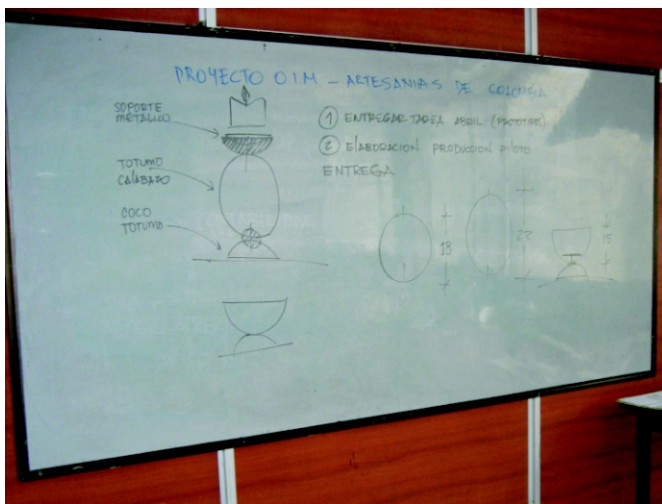 PROYECTO O.I.M - ARTESANIAS DE COLOMBIA
SOPORTE
METALICO
TOTUMO
CALABAZO
COCO
TOTUMO
① ENTREGAR TAREA ABRIL (PROTOTIPO)
② ElABORACION PRODUCION PILOTO
ENTREGA
18
22
15